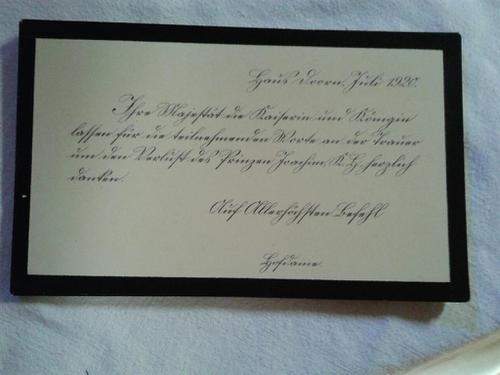 Haus Doorn, Juli 1920.
Ihre Majestät die Kaiserin und Königin
lassen für die teilnehmenden Worte an der Trauer
um den Verlust des Prinzen Joachim, K.H., herzlich
danken.
Auf Allerhöchsten Befehl
Hofdame.